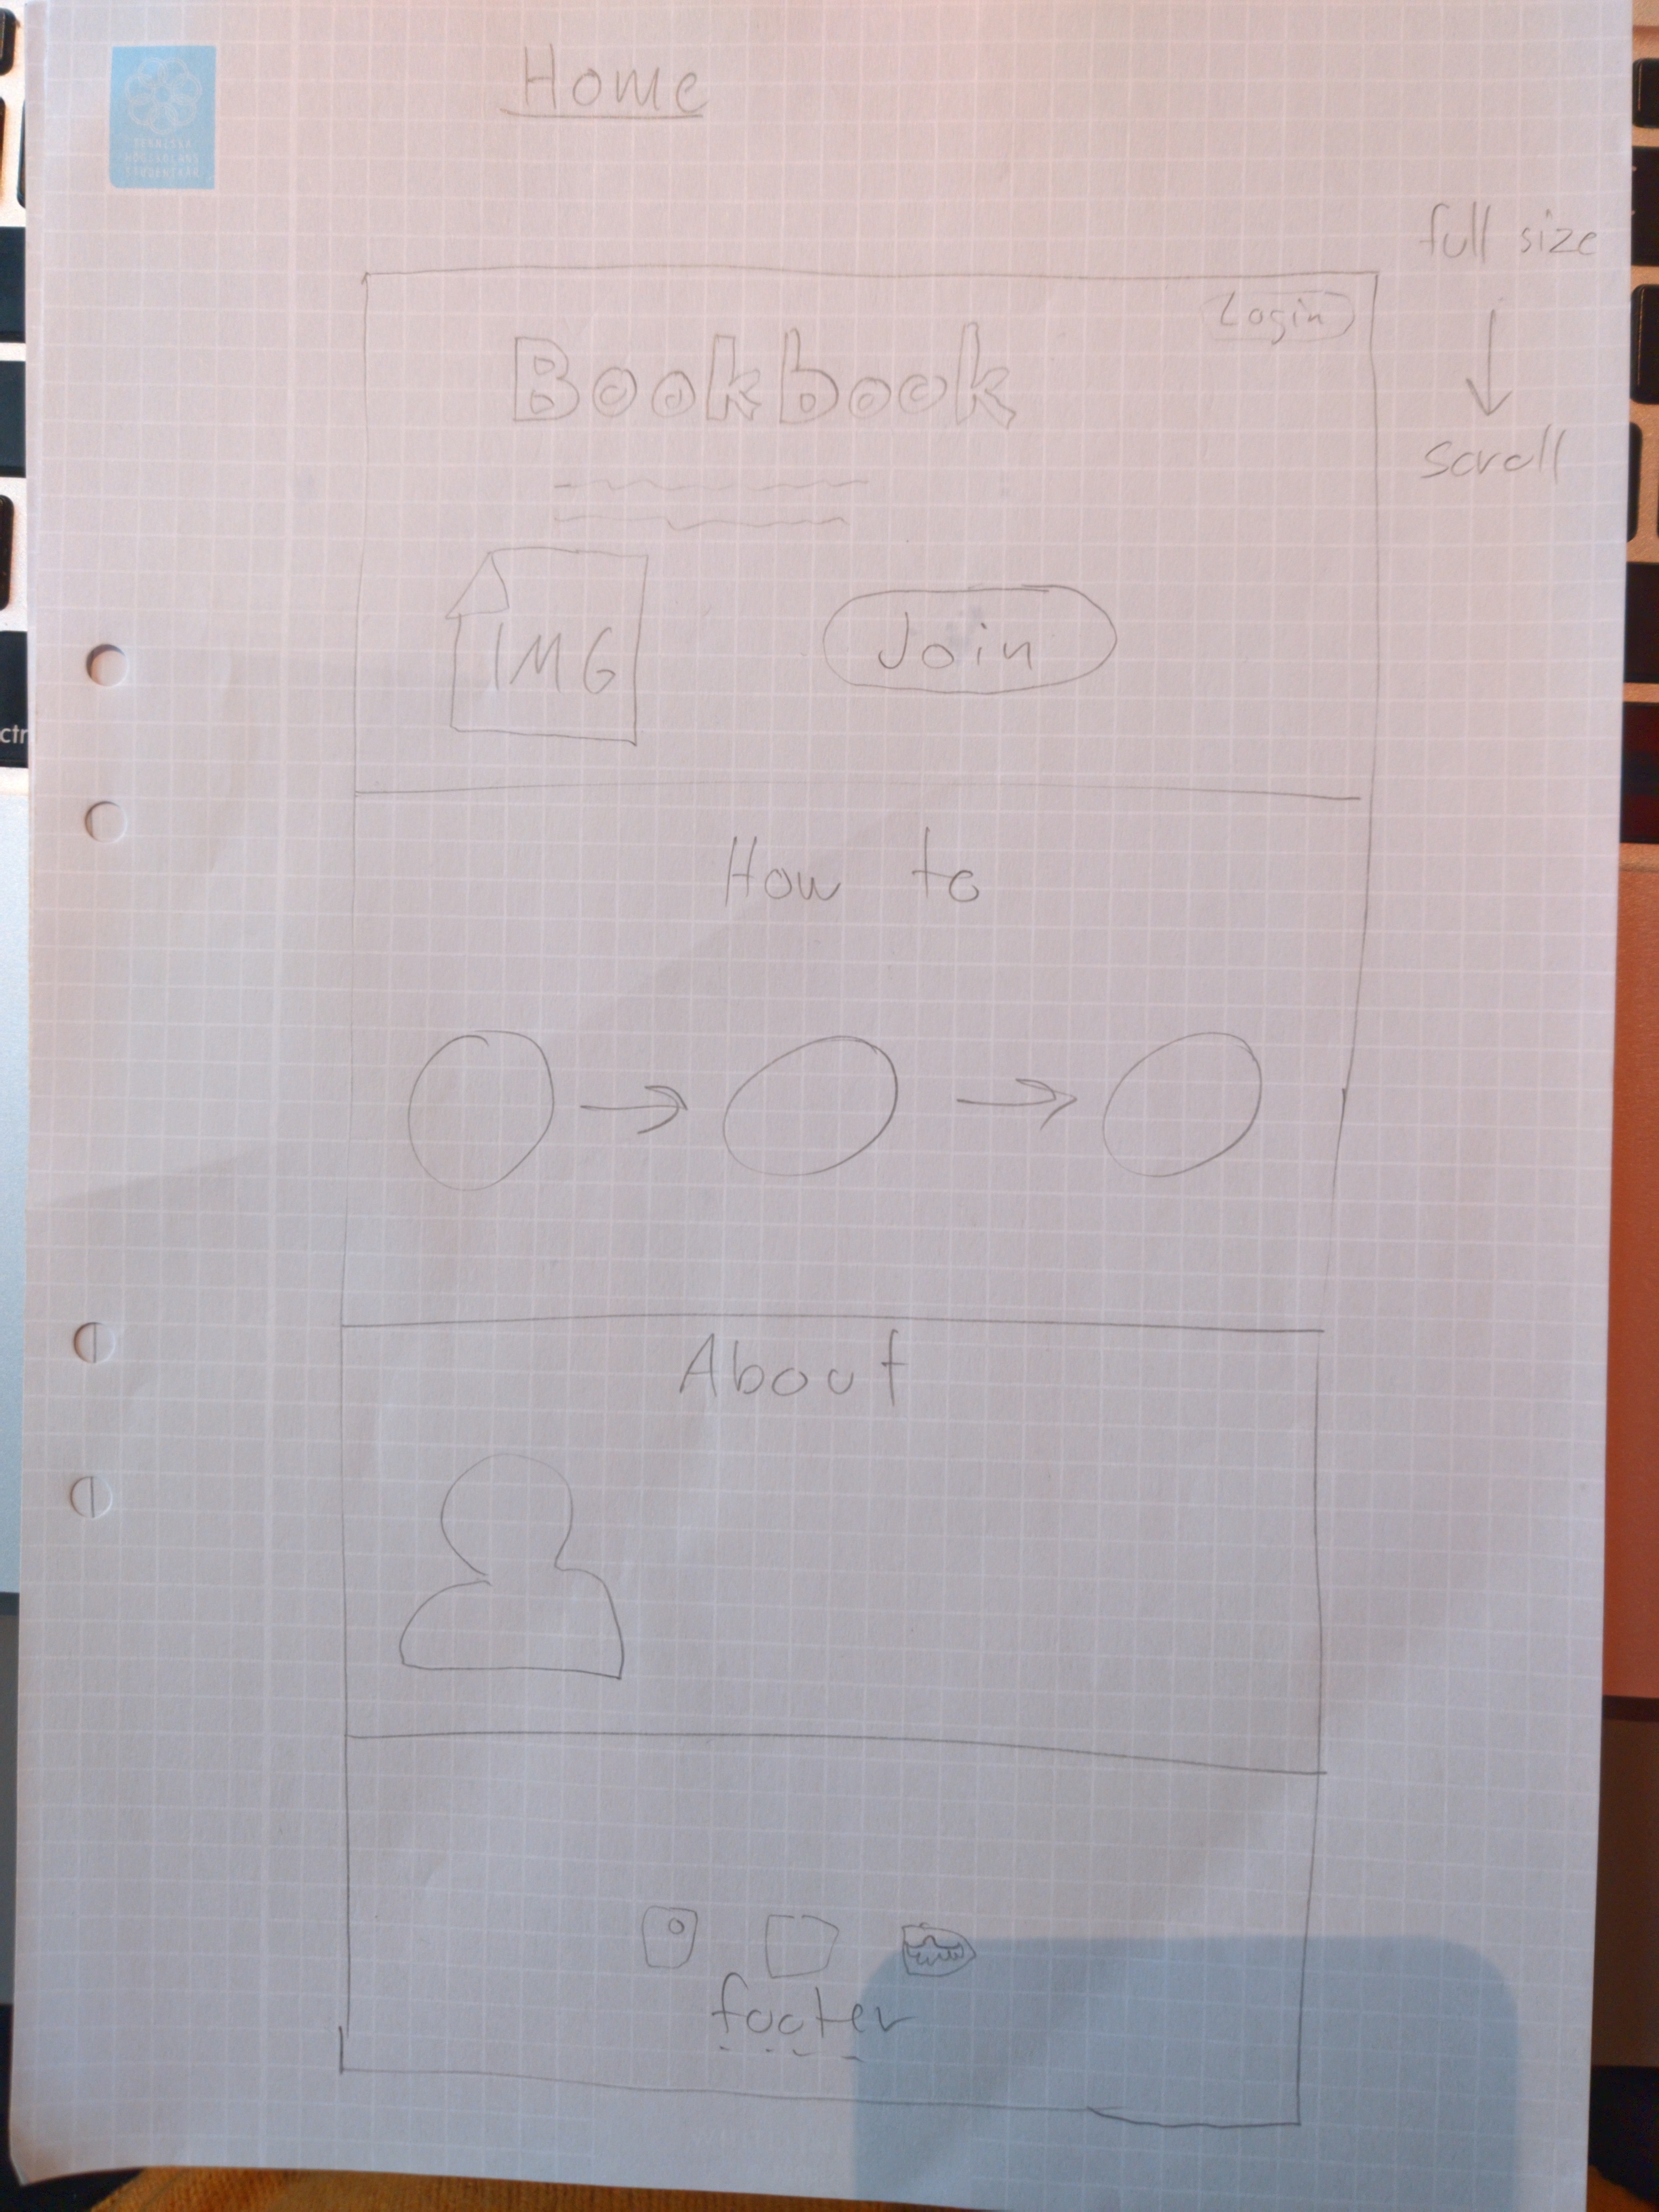 TEKNISKA
HÖGSKOLANS
STUDENTKÅR
Home
full size
scroll
Login
Bookbook
IMG
Join
How to
About
footer
ctr